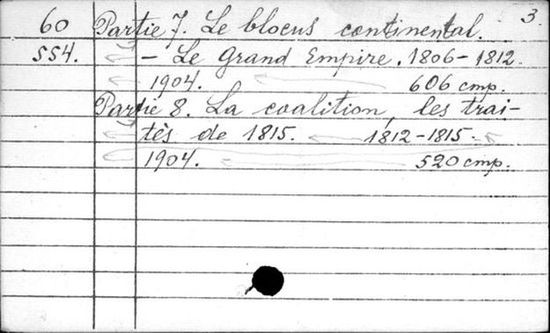 3.
60 Partie 7. Le blocus continental.
554. - Le Grand Empire. 1806-1812.
1904. 606 cmp.
Partie 8. La coalition, les trai-
tés de 1815. 1812-1815.
1904. 520 cmp.